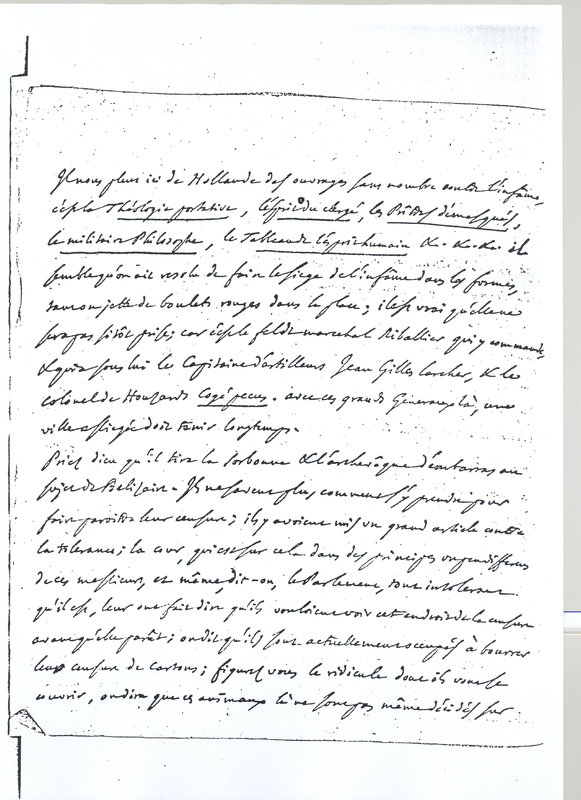 Il nous pleut ici de Hollande des ouvrages sans nombre contre l'infâme,
c'est la Théologie portative, l'esprit du clergé, les Prêtres démasqués,
le militaire Philosophe, le Tableau de l'esprit humain &c. &c. &c. il
semble qu'on ait resolu de faire le siege de l'infâme dans les formes,
tant on jette de boulets rouges dans la place; il est vrai qu'elle ne
sera pas sitôt prise; car c'est le feldt marechal Riballier qui y commande,
& qui a sous lui le Capitaine d'artilleurs Jean Gilles Larcher, & le
colonel de Houzards Cogé pecus. avec ces grands Generaux là, une
ville assiegée doit tenir longtemps.
Priez dieu qu'il tire la Sorbonne & l'archevêque d'embarras au
sujet de Belisaire. Ils ne savent plus comment s'y prendre pour
faire paroître leur censure; ils y avoient mis un grand article contre
la tolerance; la cour, qui est sur cela dans des principes un peu differens
de ces messieurs, et même, dit-on, le Parlement, tout intolerant
qu'il est, leur ont fait dire qu'ils vouloient voir cet endroit de la censure
avant qu'elle parût; on dit qu'ils sont actuellement occupés à bourrer
leur censure de cartons; figurez vous le ridicule dont ils vont se
couvrir, on dira que ces animaux là ne sont pas même décidés sur